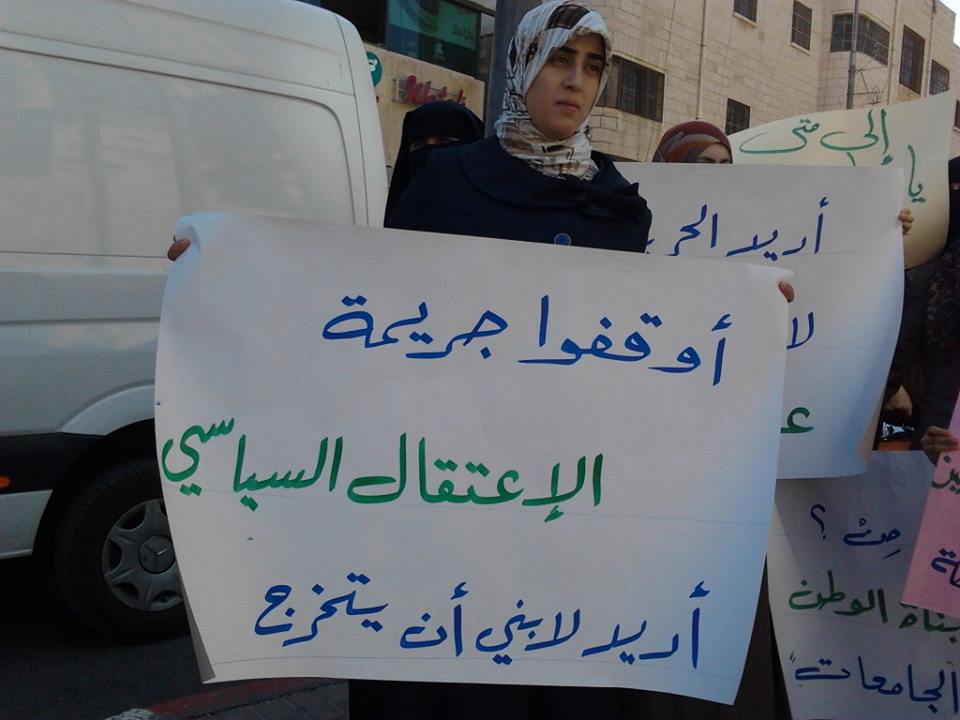 أوقفوا جريمة
الإعتقال السياسي
أريد لابني أن يتخرج
إلى متى
يا
أريد الحر
لا
من ؟
بناة الوطن
الجامعات"